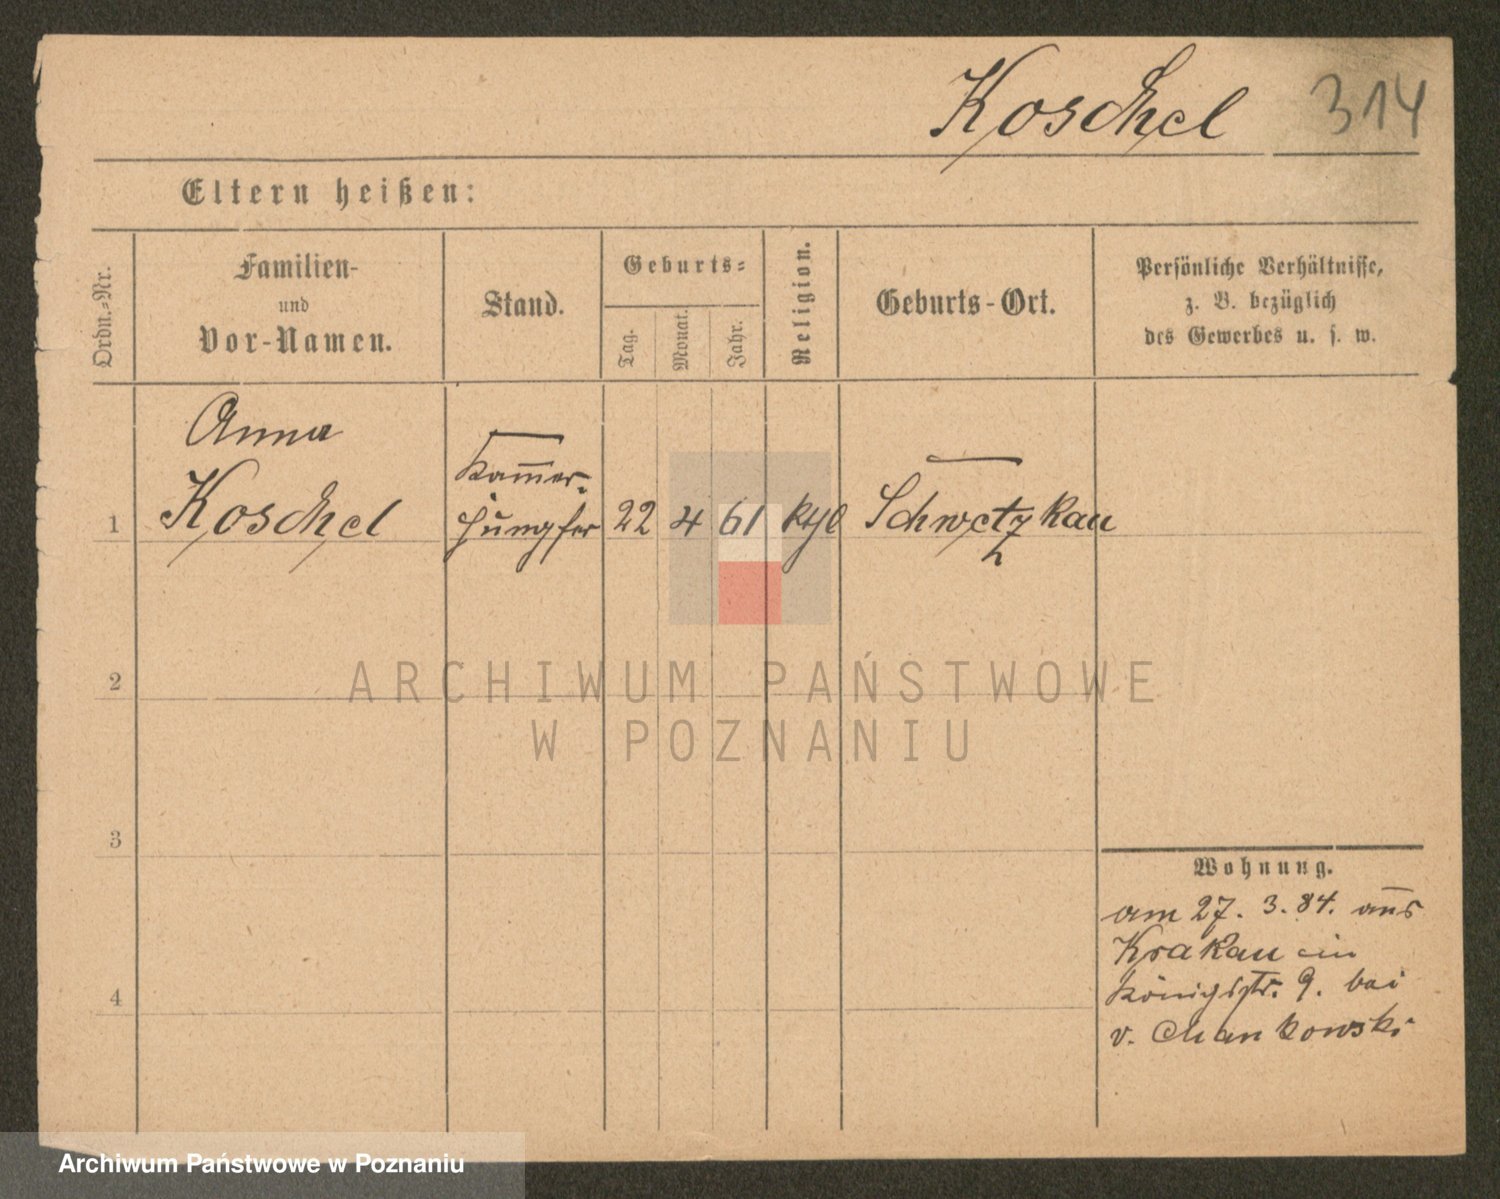 Koschel 314
Eltern heißen:
Ordn.-Nr.
Familien-
und
Vor-Namen.
Stand.
Geburts-
Tag.
Monat.
Jahr.
Religion.
Geburts-Ort.
Persönliche Verhältnisse,
z. B. bezüglich
des Gewerbes u. s. w.
Anna
Koschel
Kam̄er-
jungfer
1
22 4 61 ktl Schwetzkau
2
ARCHIWUM PAŃSTWOWE
W POZNANIU
3
4
Wohnung.
am 27. 3. 84. aus
Krakau in
Königstr. 9. bei
v. Chankowski
Archiwum Państwowe w Poznaniu